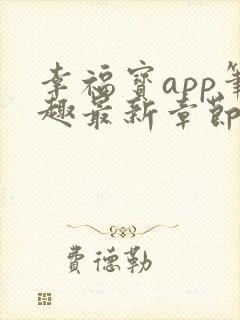 幸福宝app笔
趣最新章节
费德勒